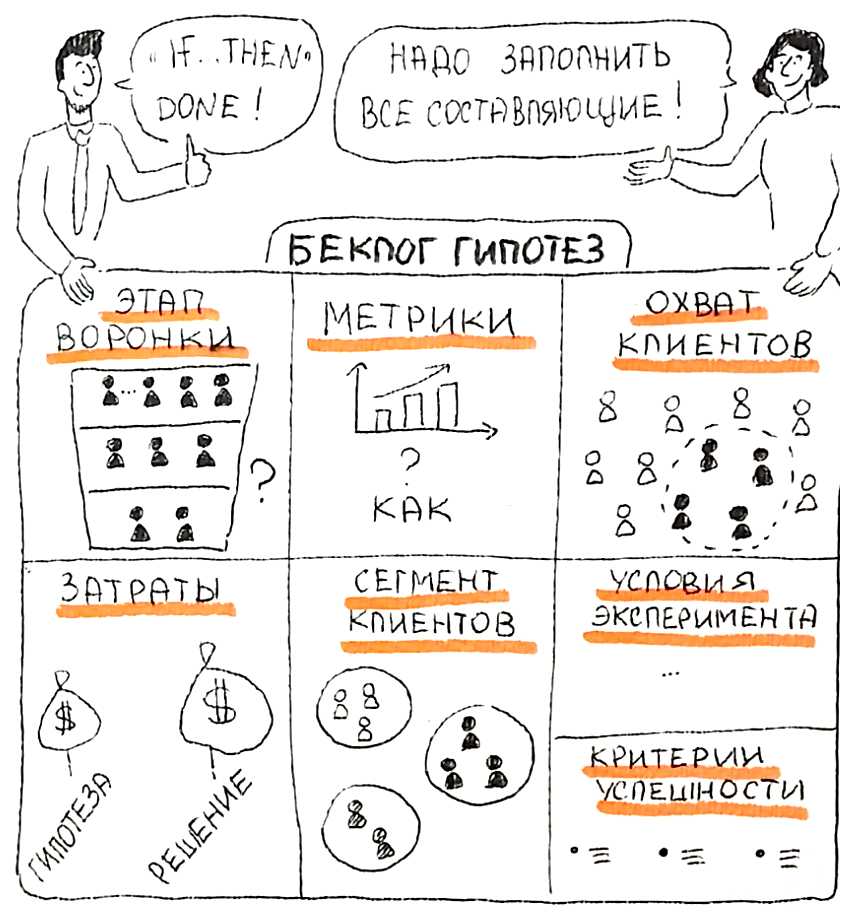 "IF...THEN"
DONE!
НАДО ЗАПОЛНИТЬ
ВСЕ СОСТАВЛЯЮЩИЕ!
БЕКЛОГ ГИПОТЕЗ
ЭТАП
ВОРОНКИ
...
?
МЕТРИКИ
?
КАК
ОХВАТ
КЛИЕНТОВ
ЗАТРАТЫ
$
$
ГИПОТЕЗА
РЕШЕНИЕ
СЕГМЕНТ
КЛИЕНТОВ
УСЛОВИЯ
ЭКСПЕРИМЕНТА
...
КРИТЕРИИ
УСПЕШНОСТИ